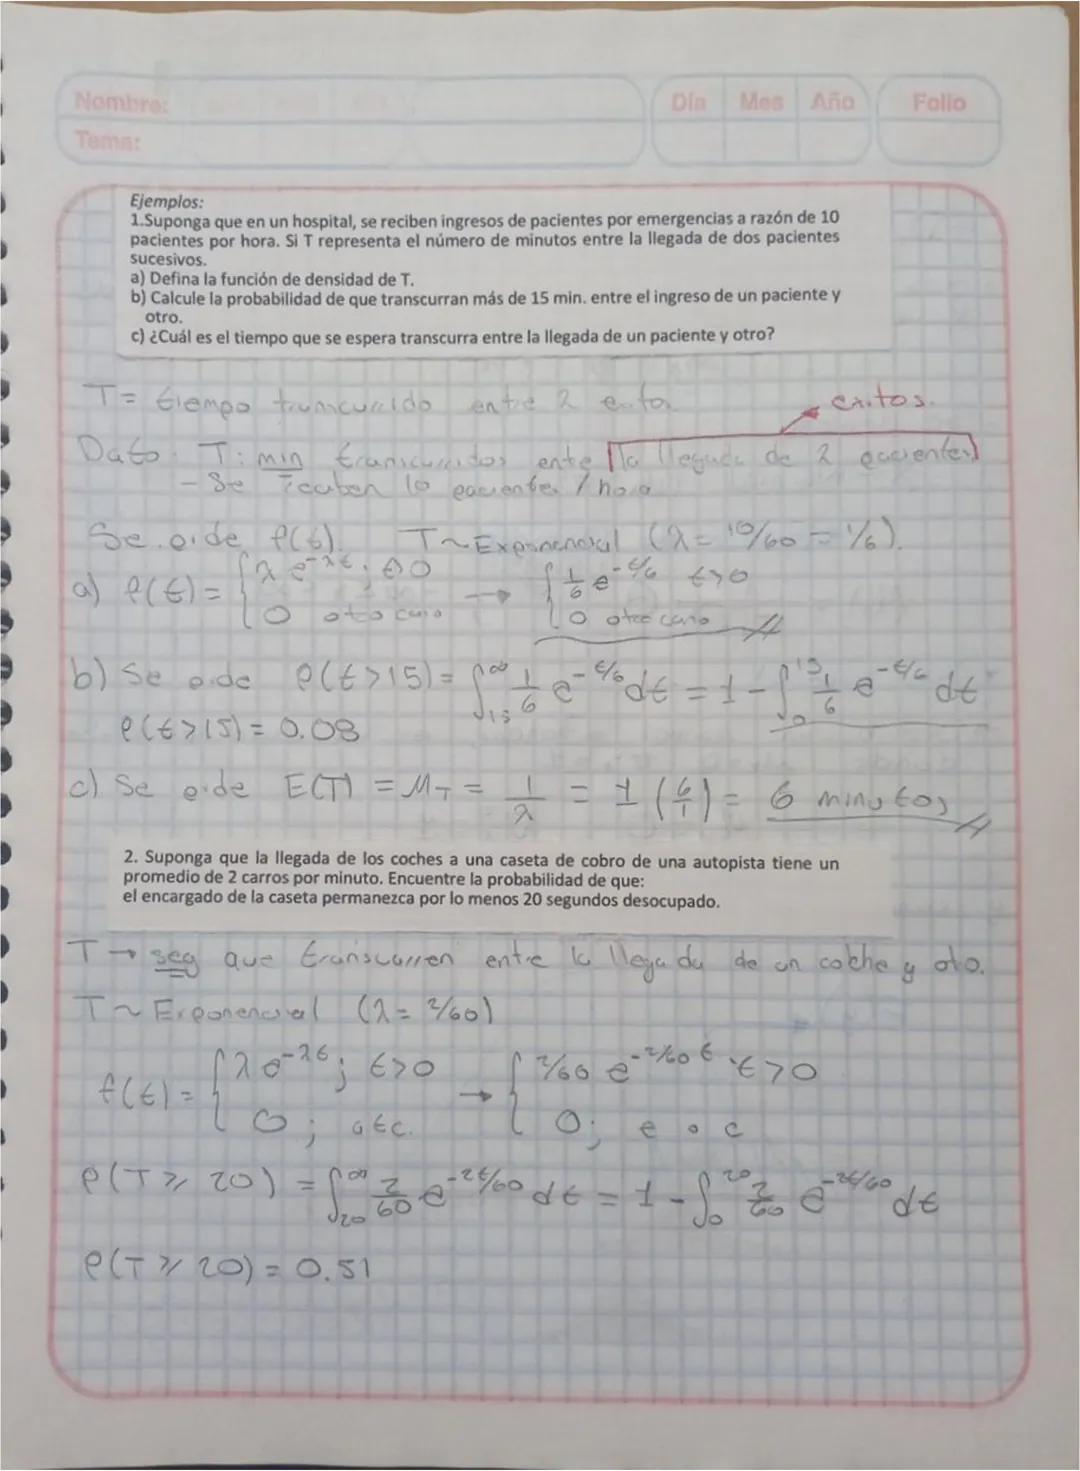 Nombre:
Día Mes Año Folio
Tema:
Ejemplos:
1.Suponga que en un hospital, se reciben ingresos de pacientes por emergencias a razón de 10
pacientes por hora. Si T representa el número de minutos entre la llegada de dos pacientes
sucesivos.
a) Defina la función de densidad de T.
b) Calcule la probabilidad de que transcurran más de 15 min. entre el ingreso de un paciente y
otro.
c) ¿Cuál es el tiempo que se espera transcurra entre la llegada de un paciente y otro?
T = tiempo transcurrido entre 2
exitos.
Dato: T: min transcurridos entre la llegada de 2 pacientes
- Se reciben 10 pacientes / hora
Se pide f(t). T ~ Exponencial (λ = 10/60 = 1/6).
a) f(t) = { λ e^-λt ; t>0 → { 1/6 e^-t/6 t>0
0 otro caso 0 otro caso
b) Se pide P(t>15) = ∫15^∞ 1/6 e^-t/6 dt = 1 - ∫0^15 1/6 e^-t/6 dt
P(t>15) = 0.08
c) Se pide E(T) = M_T = 1/λ = 1 (6/1) = 6 minutos
2. Suponga que la llegada de los coches a una caseta de cobro de una autopista tiene un
promedio de 2 carros por minuto. Encuentre la probabilidad de que:
el encargado de la caseta permanezca por lo menos 20 segundos desocupado.
T → seg que transcurren entre la llegada de un coche y otro.
T ~ Exponencial (λ = 2/60)
f(t) = { λ e^-λt ; t>0 → { 2/60 e^-2/60 t t>0
0 ; 0 ; e o c
P(T ≥ 20) = ∫20^∞ 2/60 e^-2t/60 dt = 1 - ∫0^20 2/60 e^-2t/60 dt
P(T ≥ 20) = 0.51